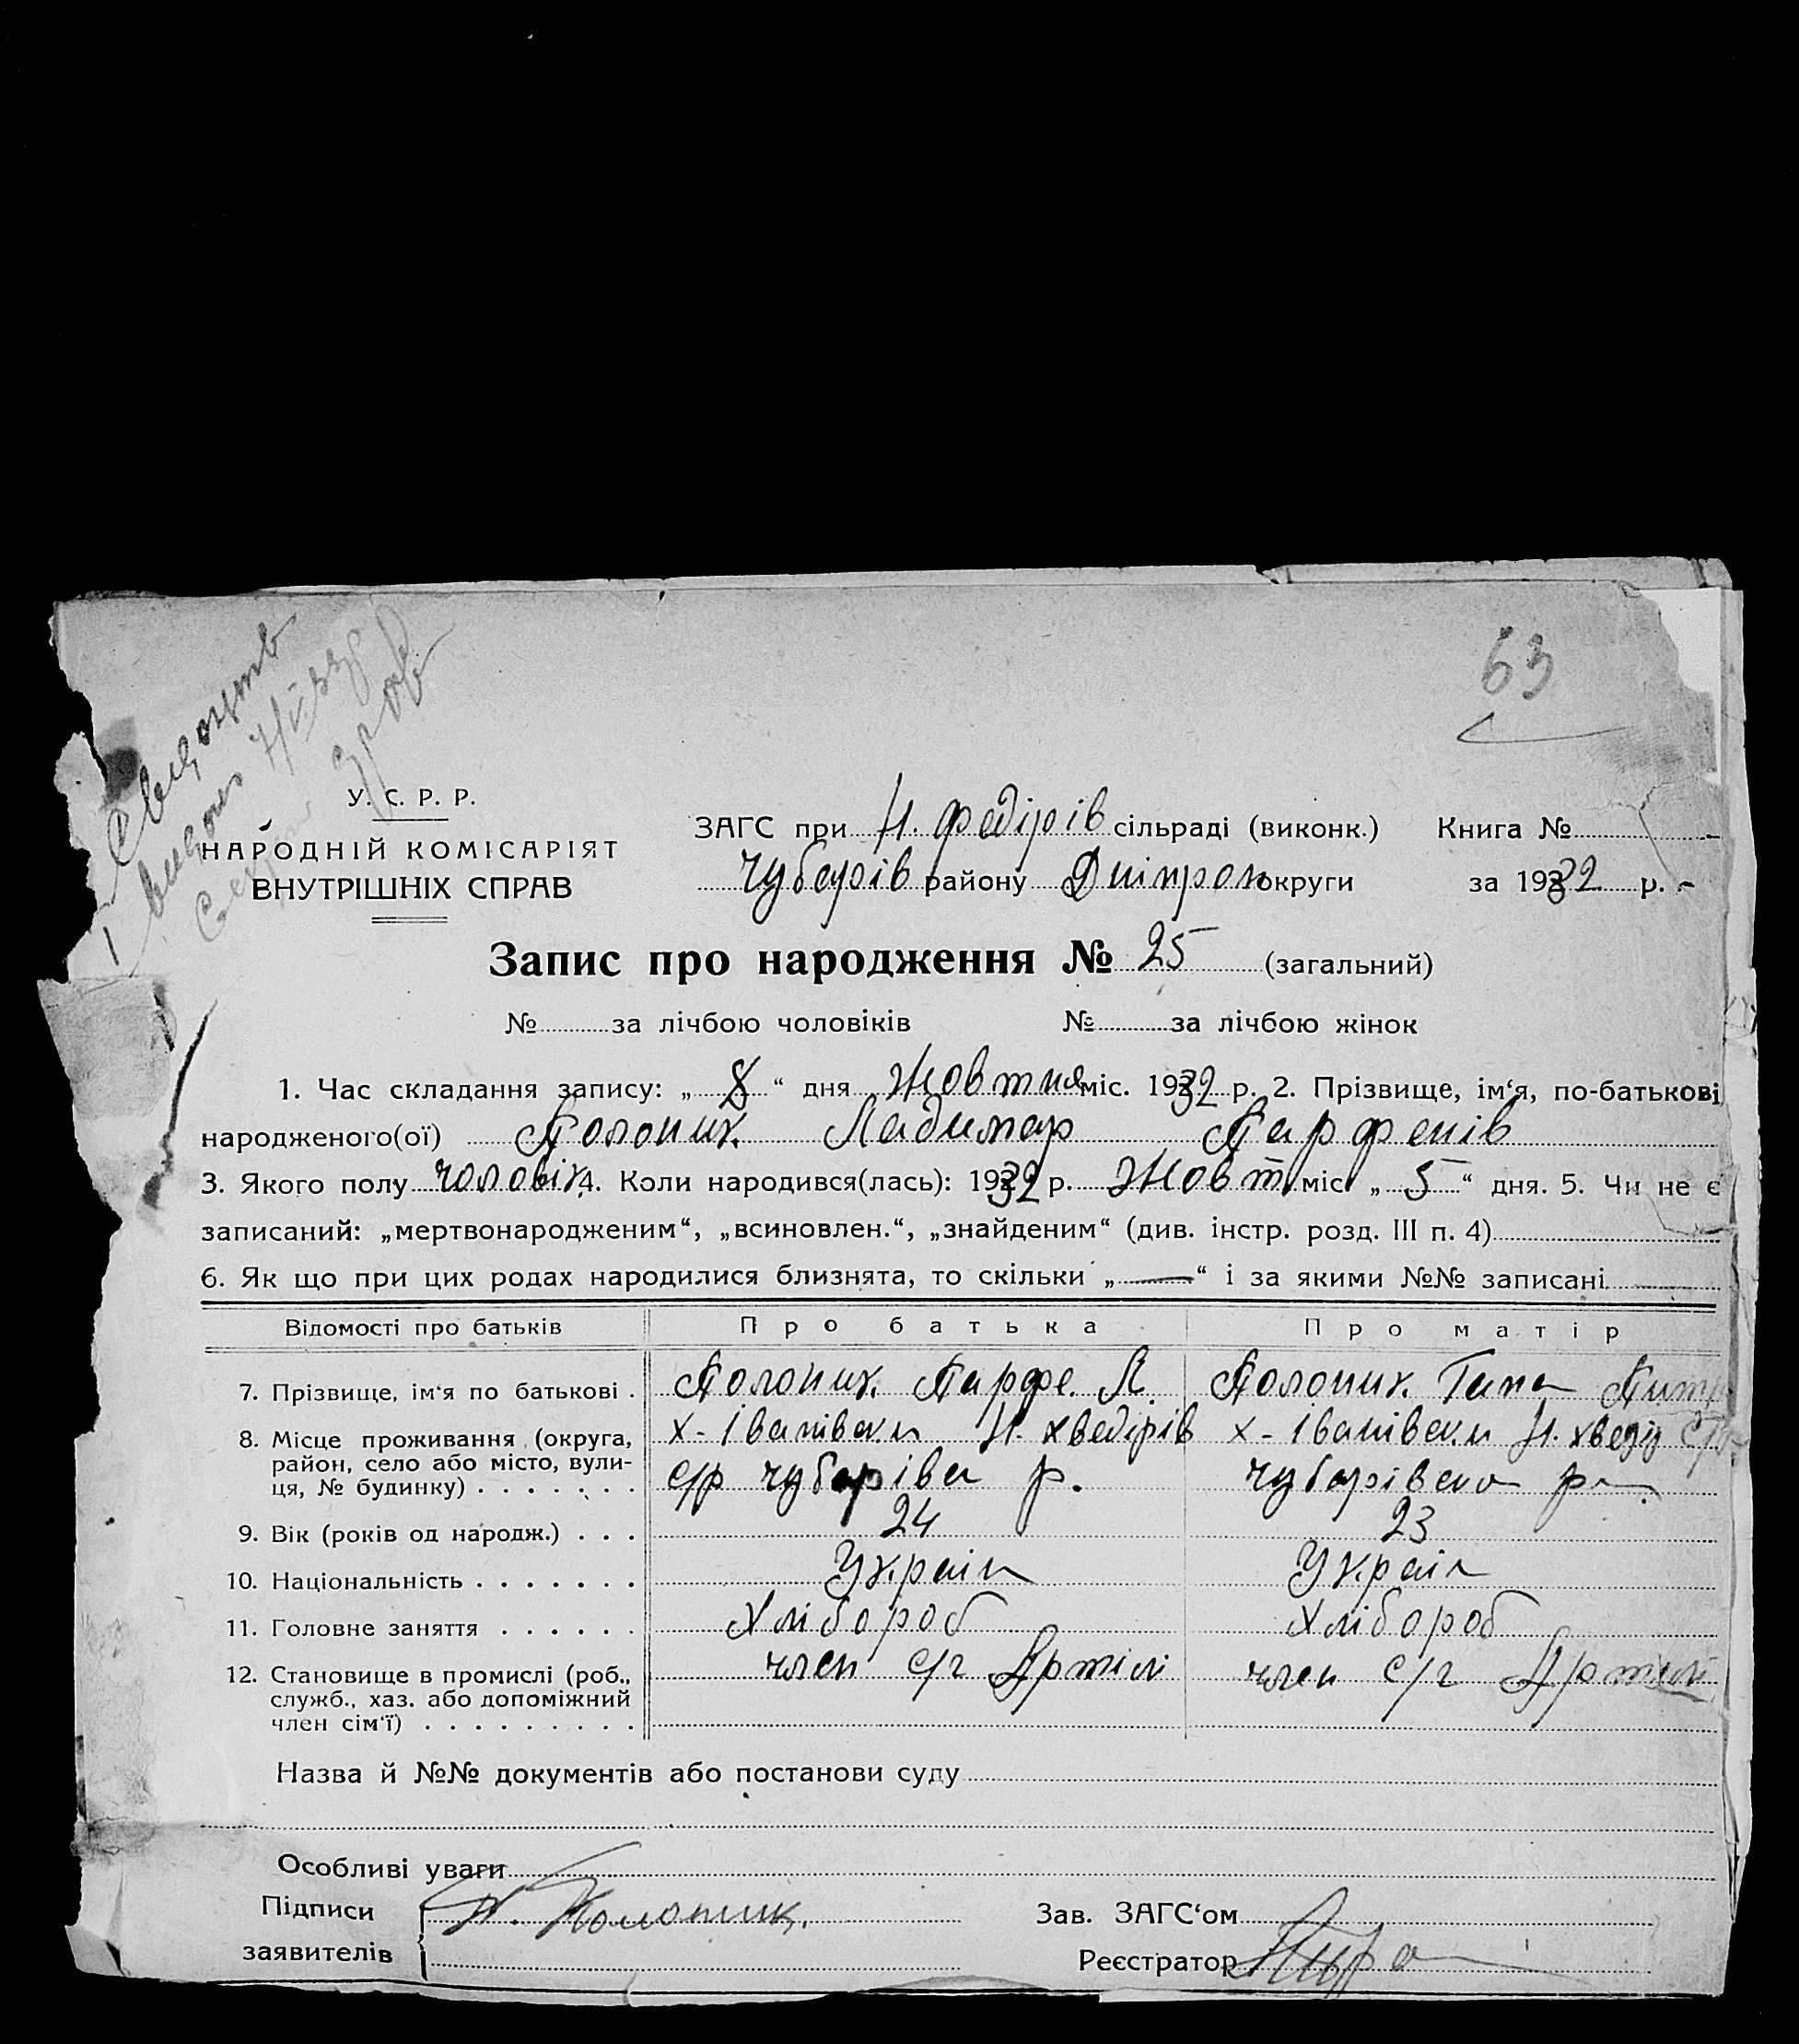 63
У. С. Р. Р.
НАРОДНІЙ КОМІСАРІЯТ
ВНУТРІШНІХ СПРАВ
ЗАГС при Н. Федірів сільраді (виконк.) Книга №
Чубарів району Дніпроп округи за 1932 р.
Запис про народження № 25 (загальний)
№ за лічбою чоловіків № за лічбою жінок
1. Час складання запису: „ 8 “ дня Жовтня міс. 1932 р. 2. Прізвище, ім‘я, по-батькові
народженого(ої) Полоник Ладимар Парфенів
3. Якого полу чоловік 4. Коли народився(лась): 1932 р. Жовт міс. „ 5 “ дня. 5. Чи не є
записаний: „мертвонародженим“, „всиновлен.“, „знайденим“ (див. інстр. розд. III п. 4)
6. Як що при цих родах народилися близнята, то скільки „ — “ і за якими №№ записані
Відомості про батьків Про батька Про матір
7. Прізвище, ім‘я по батькові . Полоник Парфе. Полоник Гапа
8. Місце проживання (округа, район, село або місто, вули- ця, № будинку) х-Іванівски Н. хведірів с/р чубарівс р. х-Іванівски Н. хведір с/р чубарівско р
9. Вік (років од народж.) . . . 24 23
10. Національність . . . . . . . Україн Україн
11. Головне заняття . . . . . . Хлібороб Хлібороб
12. Становище в промислі (роб., служб., хаз. або допоміжний член сім‘ї) . . . . . . . . . член с/г Артілі член с/г Артілі
Назва й №№ документів або постанови суду
Особливі уваги
Підписи П. Полоник. Зав. ЗАГС‘ом
заявителів Реєстратор